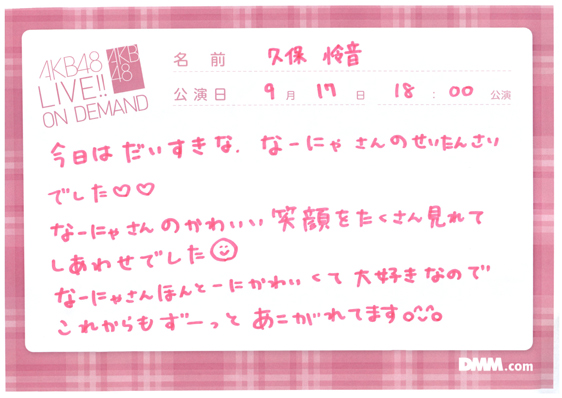 AKB48
LIVE!!
ON DEMAND
AKB
48
名 前 久保 怜音
公演日 9 月 17 日 18 : 00 公演
今日は だいすきな、なーにゃ さんのせいたんさい
でした♡♡
なーにゃさん のかわいい 笑顔をたくさん見れて
しあわせでした☺
なーにゃさんほんとーにかわいくて 大好きなので
これからもずーっと あこがれてます o^^o
DMM.com